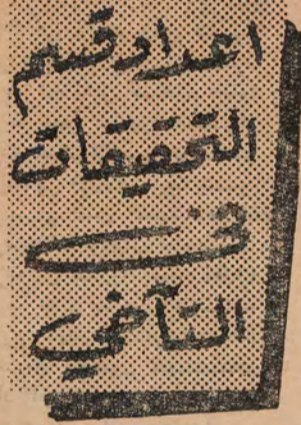 اعداد قسم
التحقيقات
في
التآخي